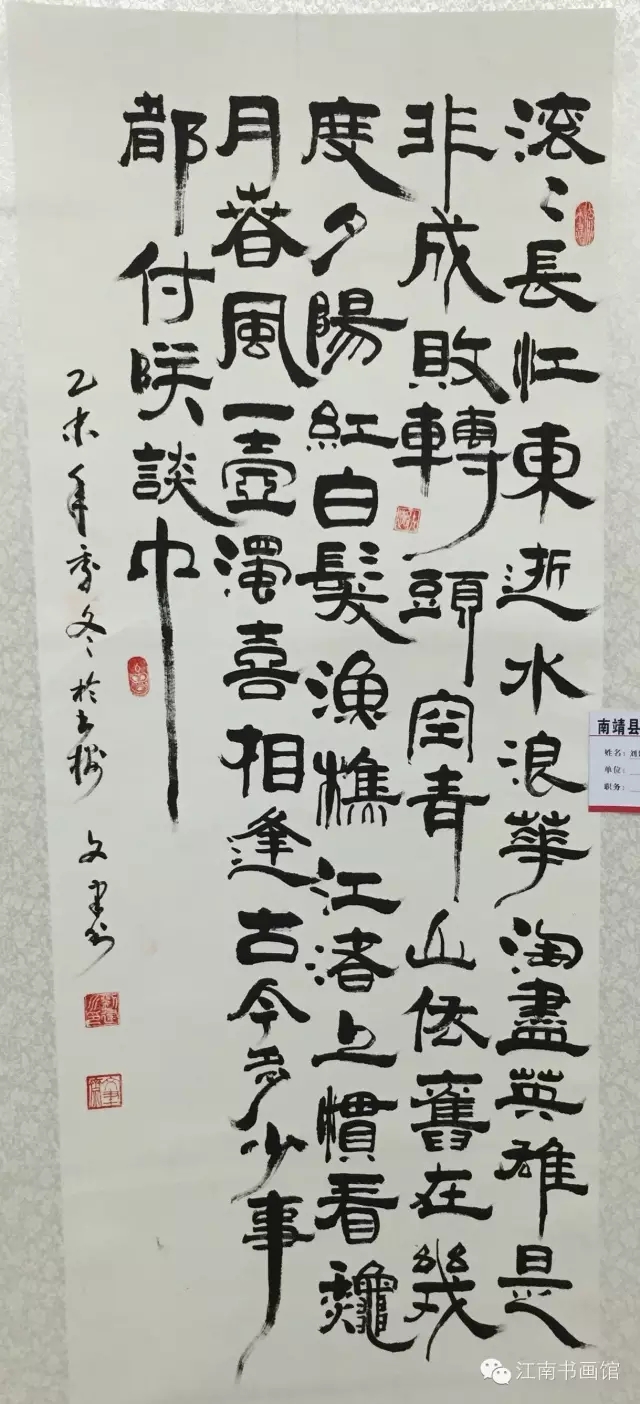 滚〻長江東逝水浪華淘盡英雄是
非成敗轉頭空青山依舊在幾
度夕陽紅白髮漁樵江渚上慣看龝
月春風一壺濁喜相逢古今多少事
都付咲談中
乙未年季冬於
南靖县
姓名：刘
单位：
职务：
江南书画馆